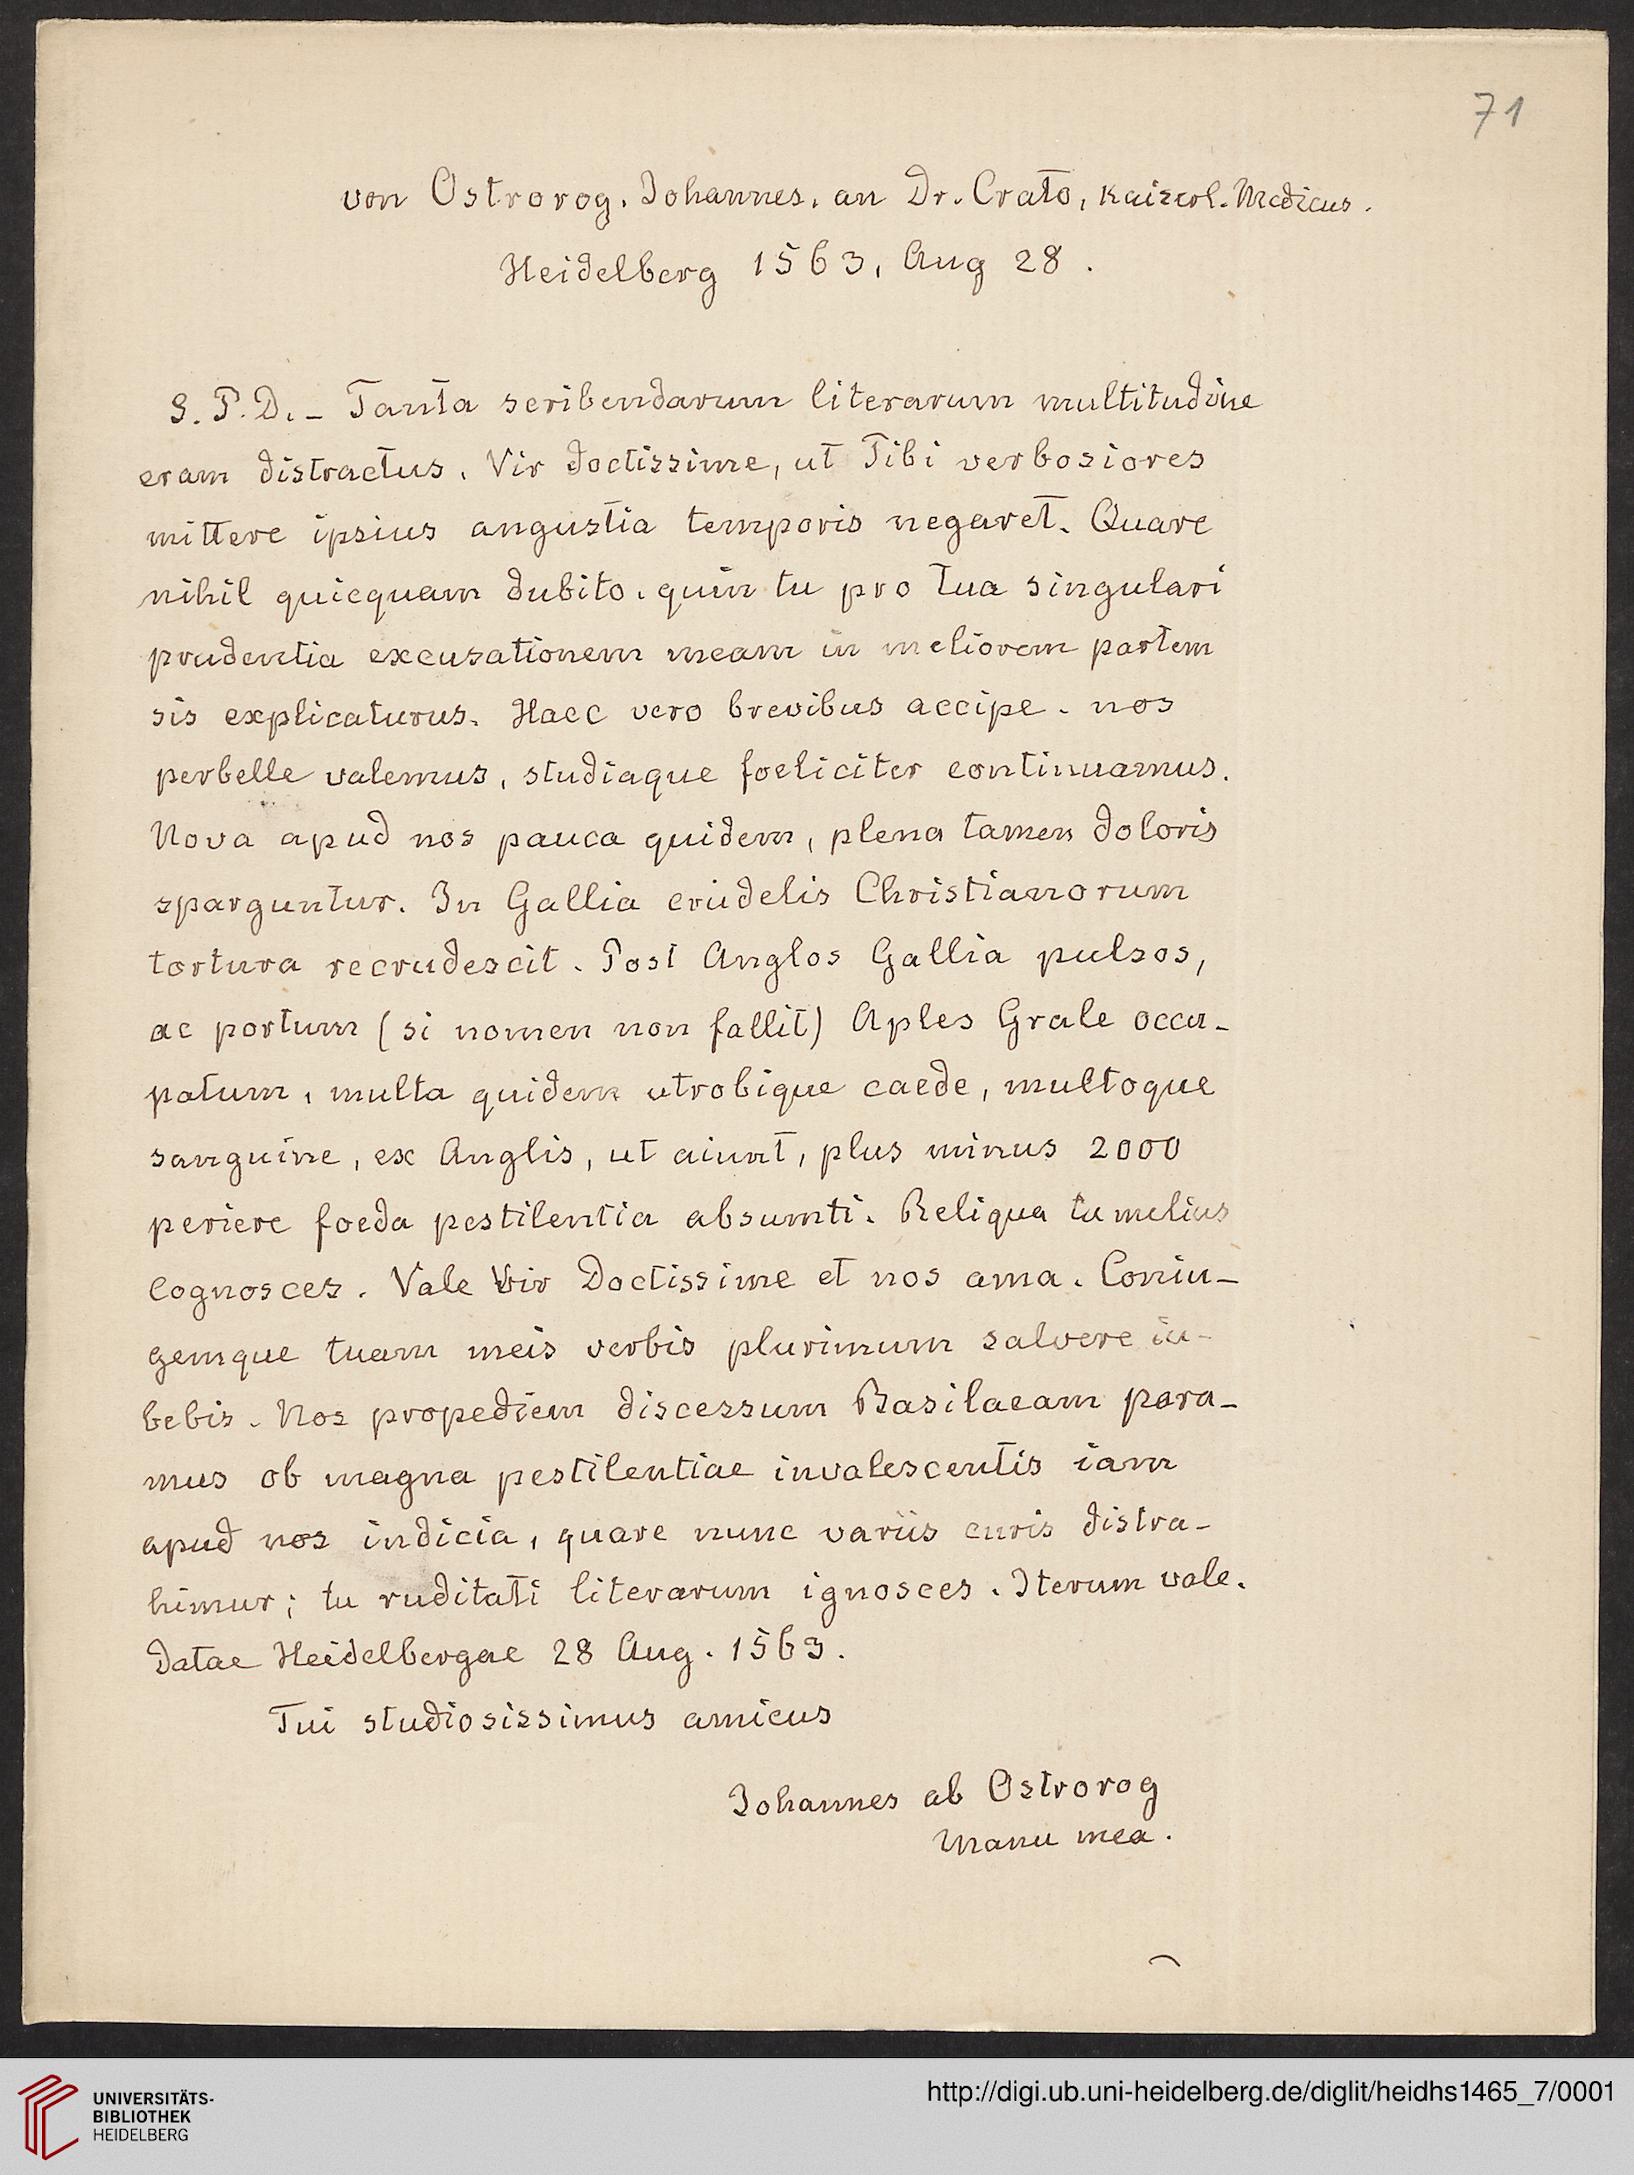 71
von Ostrorog, Johannes, an Dr. Crato, Kaiserl. Medicus.
Heidelberg 1563, Aug 28.
S. P. D. - Tanta scribendarum literarum multitudine
eram distractus, Vir doctissime, ut Tibi verbosiores
mittere ipsius angustia temporis negaret. Quare
nihil quicquam dubito, quin tu pro tua singulari
prudentia excusationem meam in meliorem partem
sis explicaturus. Haec vero brevibus accipe. nos
perbelle valemus, studiaque foeliciter continuamus.
Nova apud nos pauca quidem, plena tamen doloris
sparguntur. In Gallia crudelis Christianorum
tortura recrudescit. Post Anglos Gallia pulsos,
ac portum (si nomen non fallit) Aples Grale occu-
patum, multa quidem utrobique caede, multoque
sanguine, ex Anglis, ut aiunt, plus minus 2000
periere foeda pestilentia absumti. Reliqua tu melius
cognosces. Vale Vir Doctissime et nos ama. Coniu-
gemque tuam meis verbis plurimum salvere iu-
bebis. Nos propediem discessum Basilaeam para-
mus ob magna pestilentiae invalescentis iam
apud nos indicia, quare nunc variis curis distra-
himur; tu ruditati literarum ignosces. Iterum vale.
Datae Heidelbergae 28 Aug. 1563.
Tui studiosissimus amicus
Johannes ab Ostrorog
Manu mea.
UNIVERSITÄTS-
BIBLIOTHEK
HEIDELBERG
http://digi.ub.uni-heidelberg.de/diglit/heidhs1465_7/0001